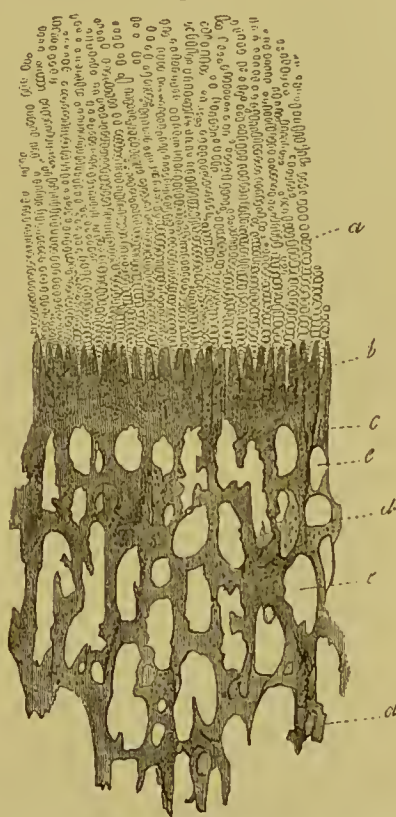 a
b
c
e
d
e
d